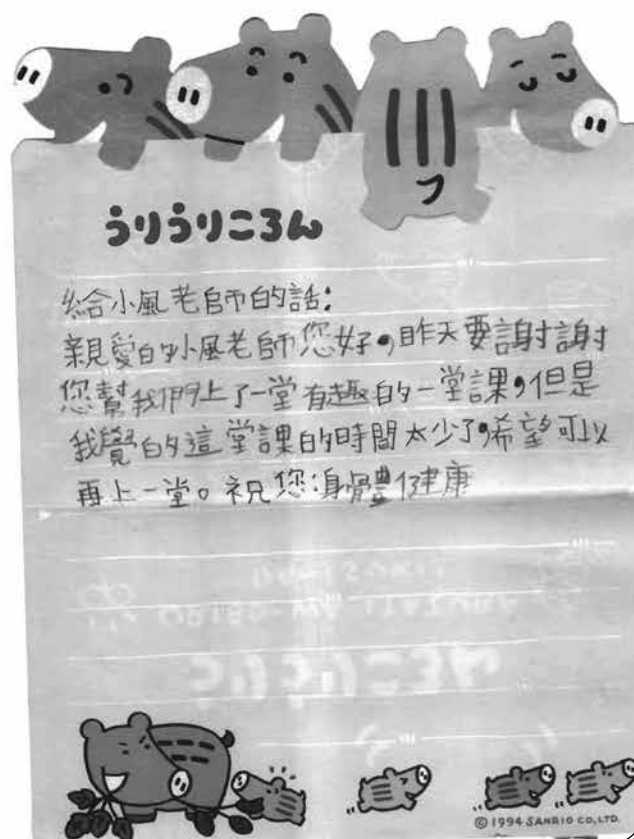 うりうりころん
給小風老師的話：
親愛的小風老師您好，昨天要謝謝
您幫我們上了一堂有趣的一堂課，但是
我覺的這堂課的時間太少了，希望可以
再上一堂。祝您：身體健康
© 1994 SANRIO CO., LTD.